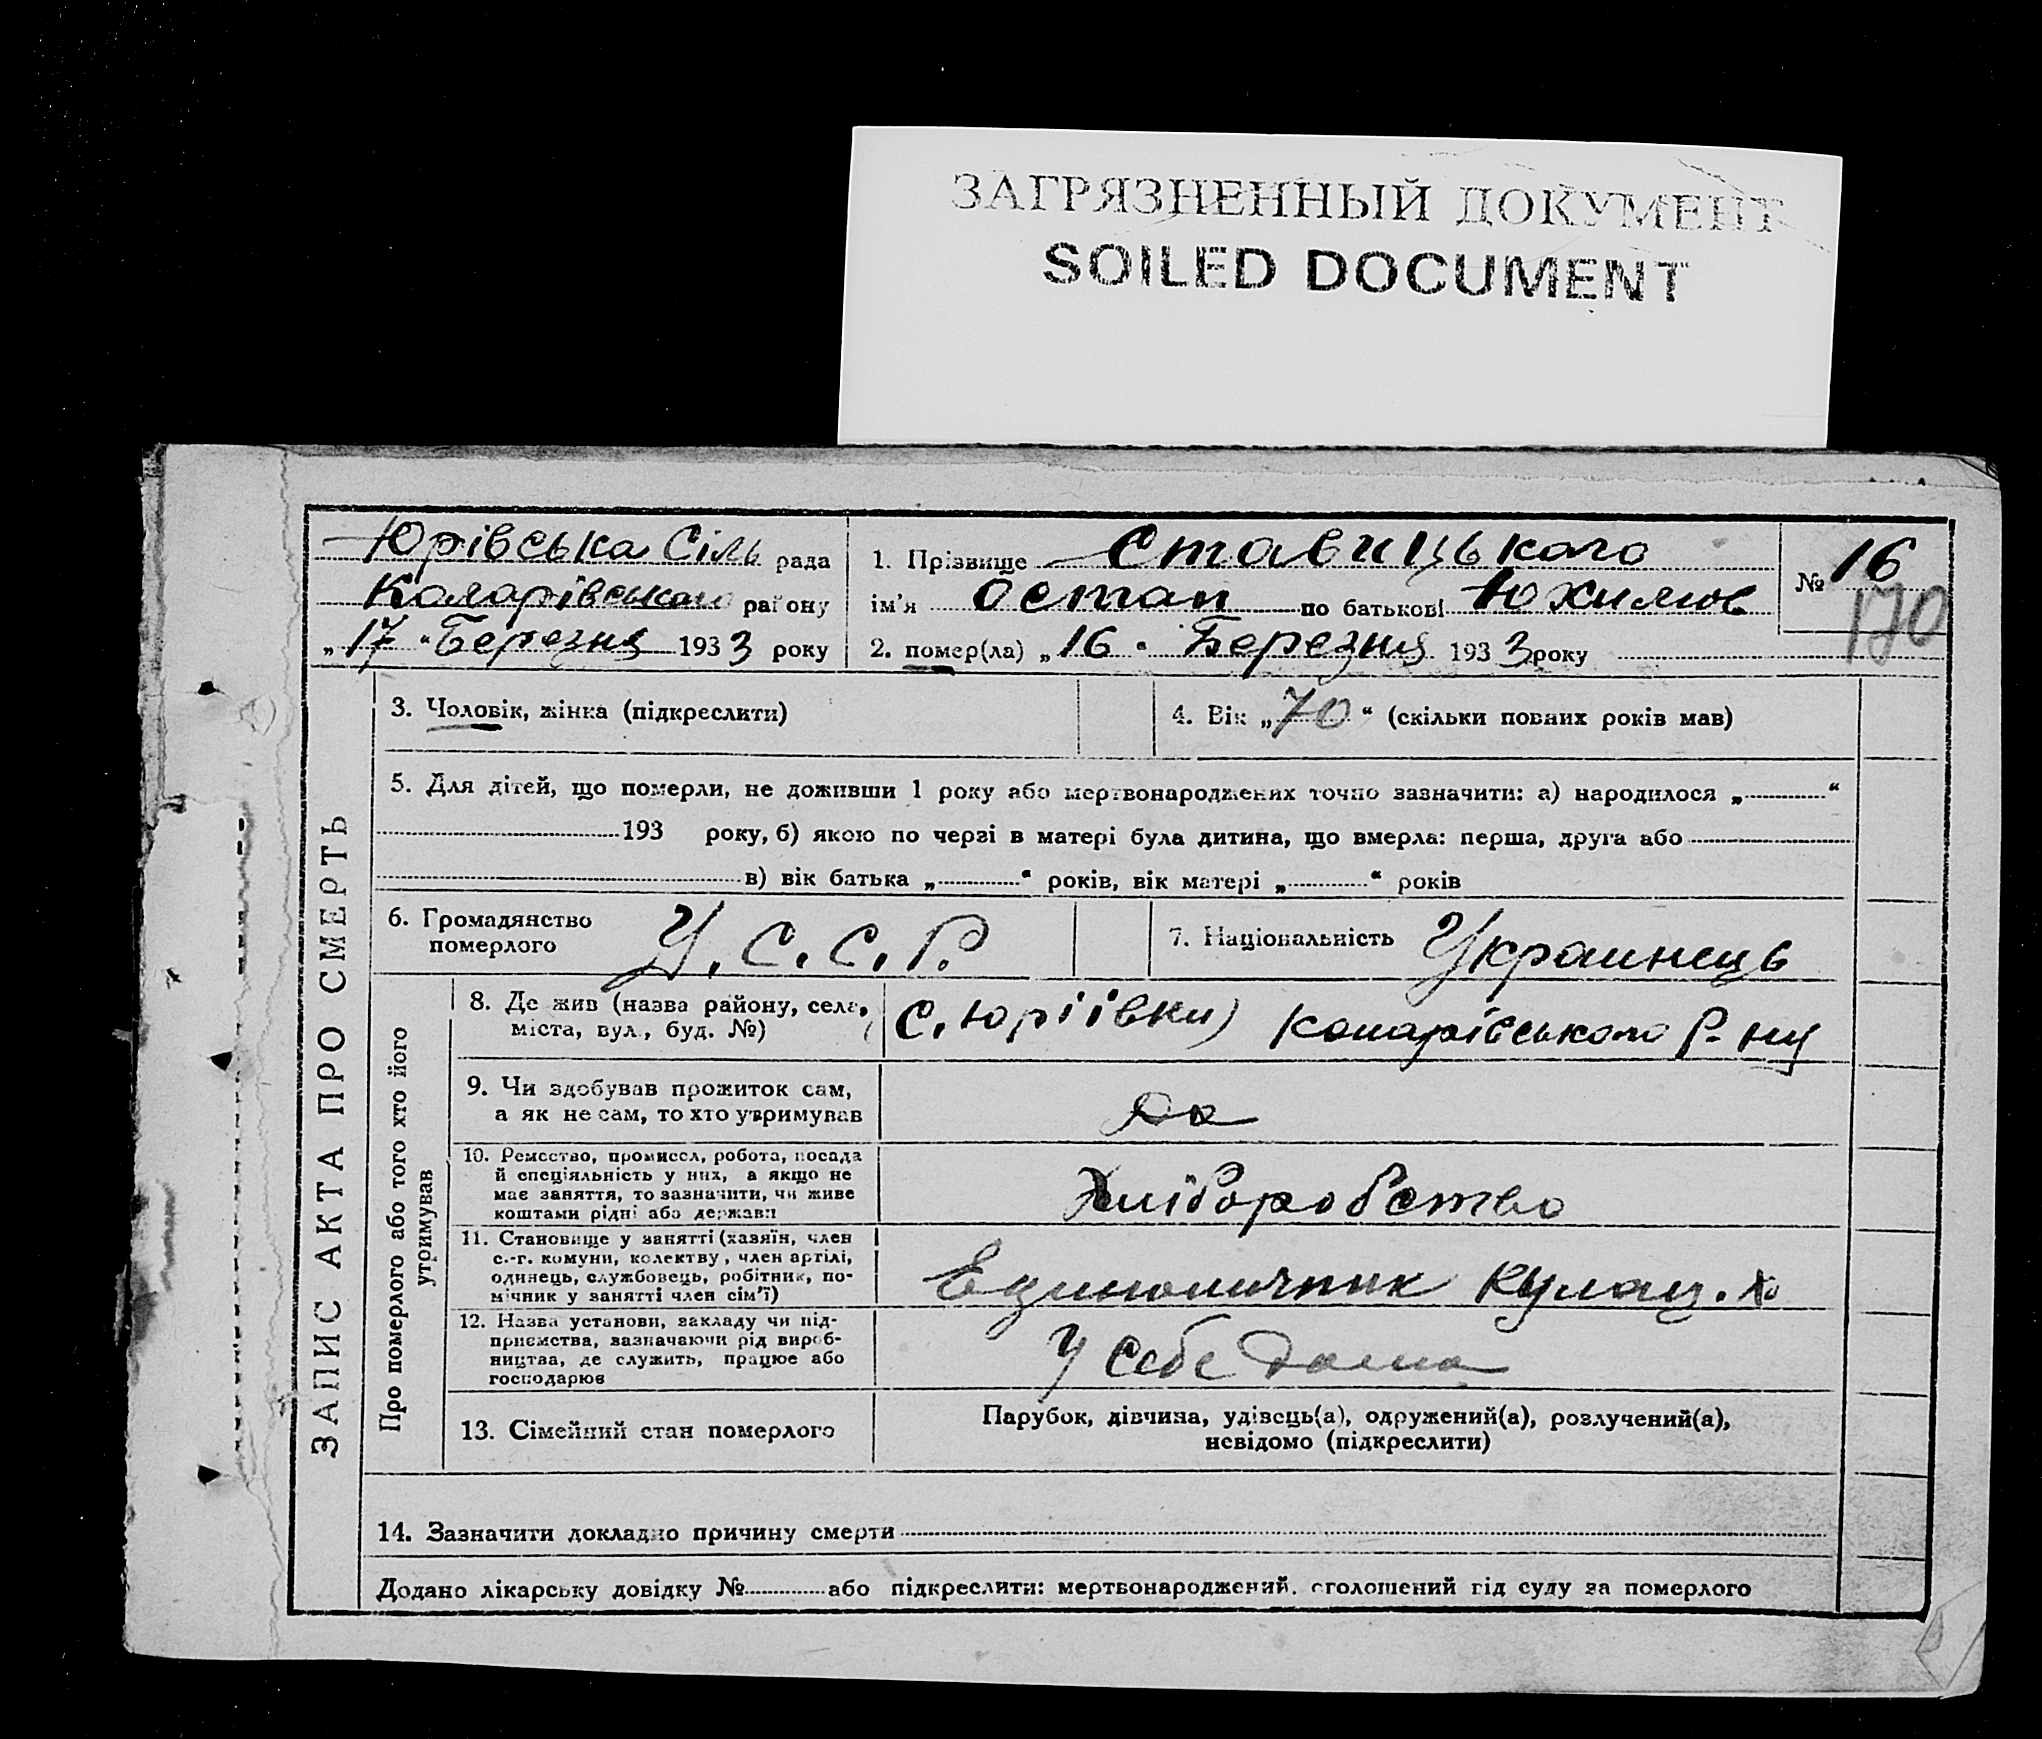 ЗАГРЯЗНЕННЫЙ ДОКУМЕНТ
SOILED DOCUMENT
Юрівська Сіль рада
Коларівського району
„17" Березня 1933 року
1. Прізвище Ставицького
ім'я Остап по батькові Юхимов
2. помер(ла) „16" Березня 1933 року
№ 16
170
ЗАПИС АКТА ПРО СМЕРТЬ
3. Чоловік, жінка (підкреслити)
4. Вік „70“ (скільки повних років мав)
5. Для дітей, що померли, не доживши 1 року або мертвонароджених точно зазначити: а) народилося „ “
193 року, б) якою по черзі в матері була дитина, що вмерла: перша, друга або
в) вік батька „ “ років, вік матері „ “ років
6. Громадянство
померлого
У.С.С.Р.
7. Національність Украинець
Про померлого або того хто його
утримував
8. Де жив (назва району, села,
міста, вул., буд. №)
с. Юріївки) Коларівського р-ну
9. Чи здобував прожиток сам,
а як не сам, то хто утримував
да
10. Ремество, промисел, робота, посада
й спеціяльність у них, а якщо не
має заняття, то зазначити, чи живе
коштами рідні або держави
Хліборобство
11. Становище у занятті (хазяїн, член
с.-г. комуни, колективу, член артілі,
одинець, службовець, робітник, по-
мічник у занятті член сім'ї)
Единоличник кулац. х
12. Назва установи, закладу чи під-
приємства, зазначаючи рід вироб-
ництва, де служить, працює або
господарює
У себе дома
13. Сімейний стан померлого
Парубок, дівчина, удівець(а), одружений(а), розлучений(а),
невідомо (підкреслити)
14. Зазначити докладно причину смерти
Додано лікарську довідку № або підкреслити: мертвонароджений, оголошений від суду за померлого